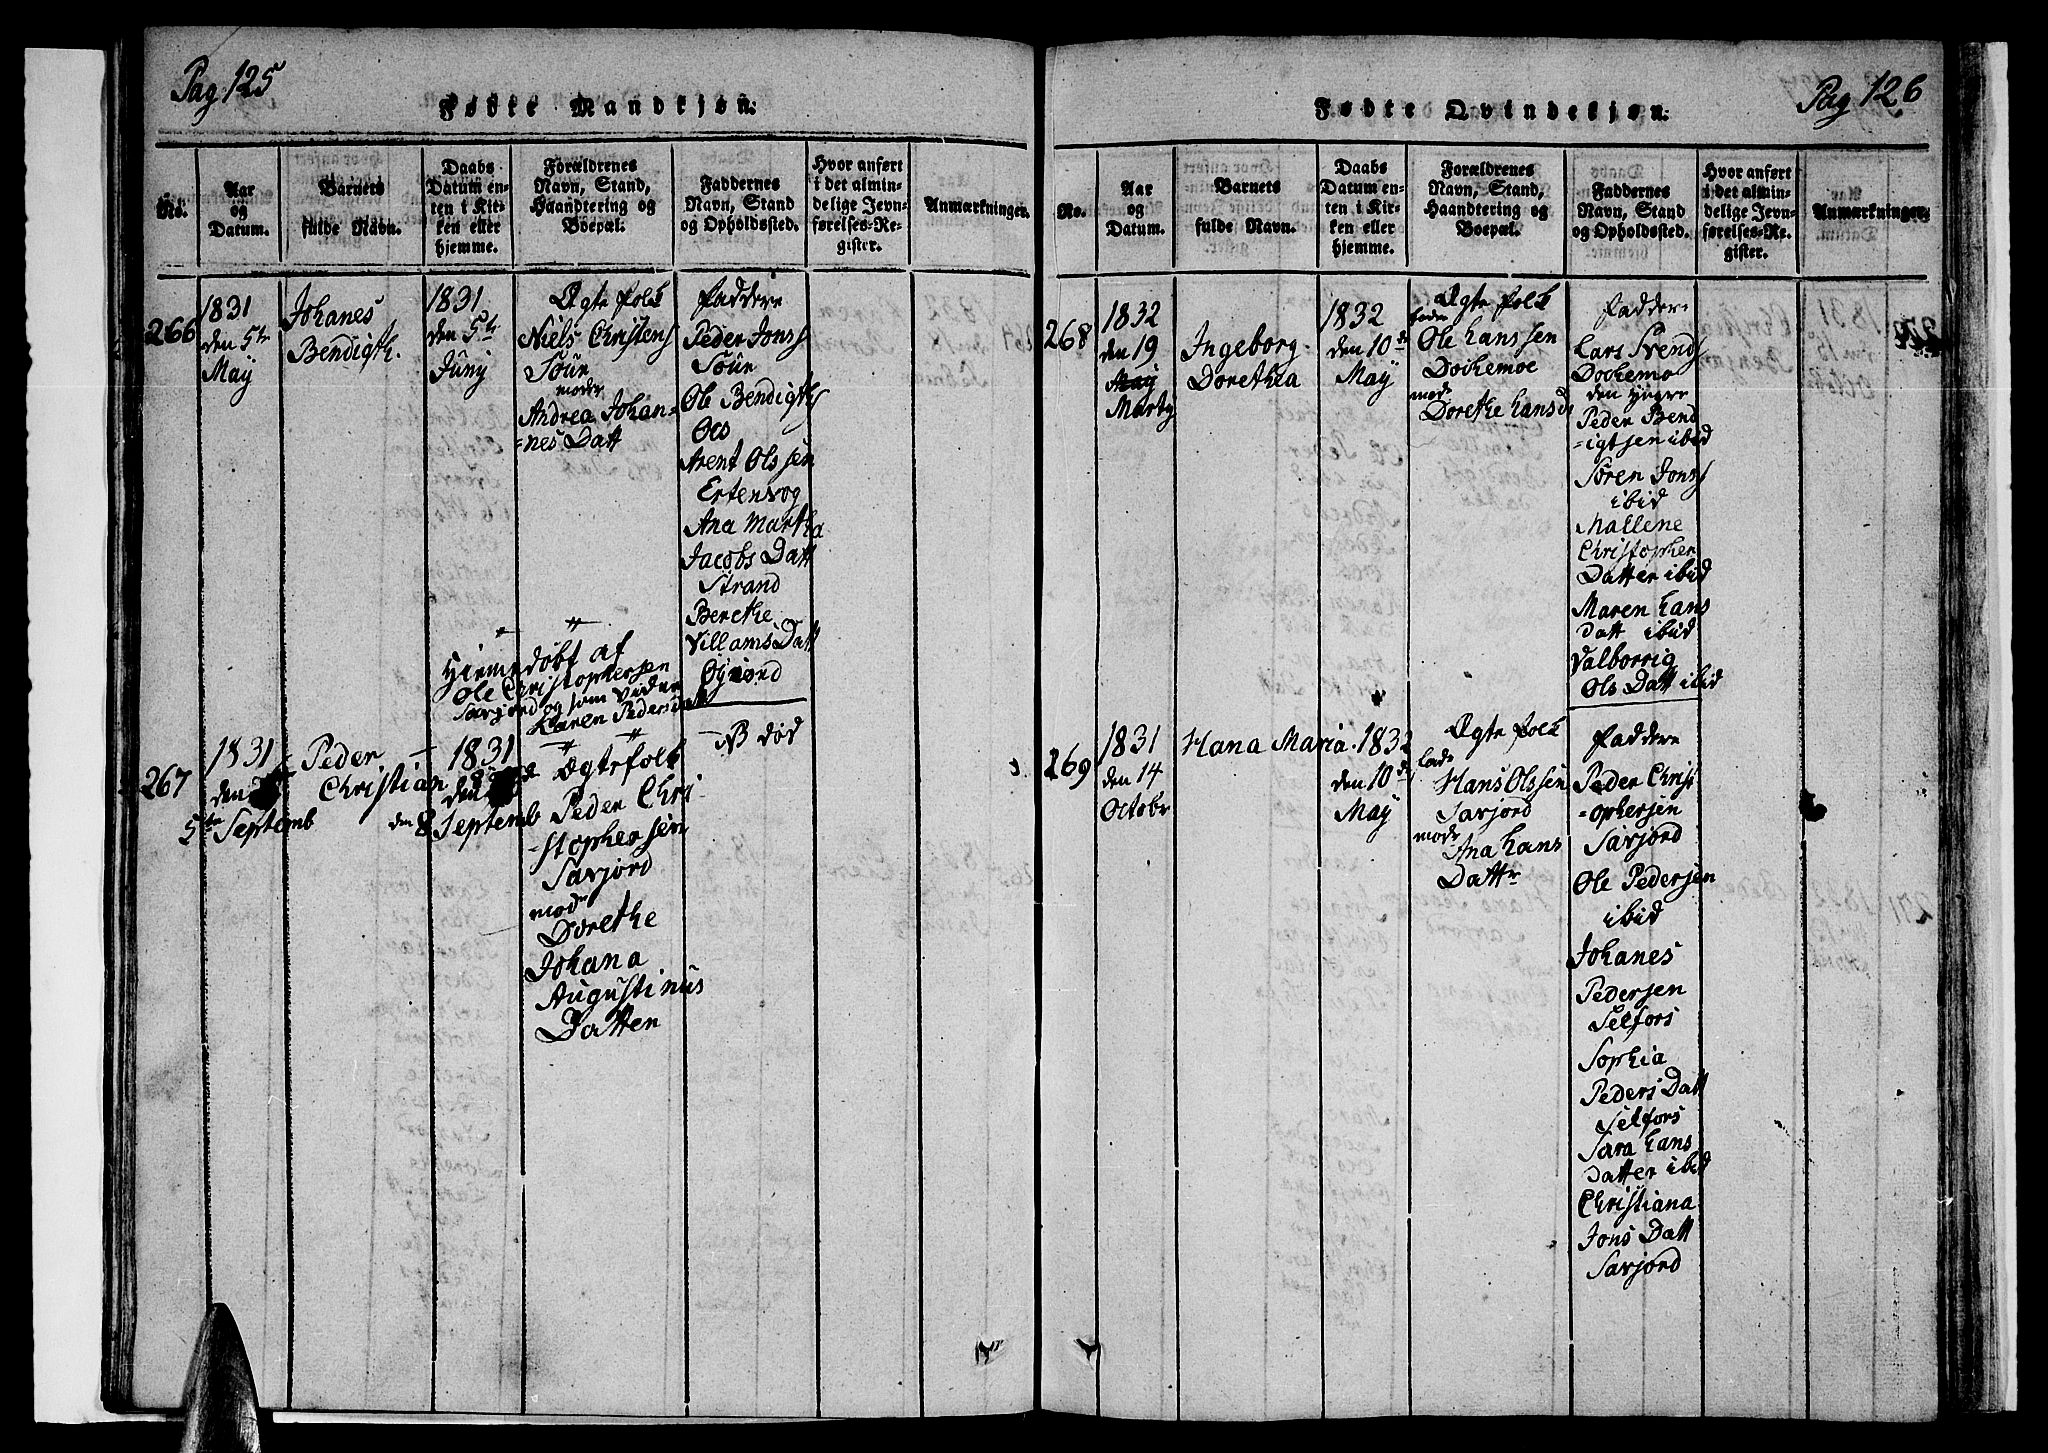 Pag 125
Fødte Mandkjøn.
No.
Aar
og
Datum.
Barnets
fulde Navn.
Daabs
Datum en-
ten i Kir-
ken eller
hjemme.
Forældrenes
Navn, Stand,
Haandtering og
Boepæl.
Faddernes
Navn, Stand
og Opholdssted.
Hvor anført
i det almin-
delige Jevn-
førelses-Re-
gister.
Anmærkninger.
266
1831
den 5te
May
Johanes
Bendigth.
1831
den 5te
Juny
Ægte folk
Niels Christens
Sour
moder
Andrea Johan-
=nes Datt
Faddere
Peder Jons
Sour
Ole Bendigths
Oes
Arent Olssen
Ertensvog
Ana Martha
Jacobs Datt
Strand
Berethe
Villams Datt
Øgiord
Hiemedøbt af
Ole Christophersen
Sarjord og som vidne
Karen Peders Datt
267
1831
den
5te Septemb
Peder
Christian
1831
den
den 8 Septemb
Ægtefolk
Peder Chri
-stophersen
Sarjord
mod
Dorethe
Johana
Augustinus
Datter
NB død
Pag 126
Fødte Qvindekjøn.
No.
Aar
og
Datum.
Barnets
fulde Navn.
Daabs
Datum en-
ten i Kir-
ken eller
hjemme.
Forældrenes
Navn, Stand,
Haandtering og
Boepæl.
Faddernes
Navn, Stand
og Opholdssted.
Hvor anført
i det almin-
delige Jevn-
førelses-Re-
gister.
Anmærkninger.
268
1832
den 19
May
Marty
Ingeborg
Dorethea
1832
den 10de
May
Ægte folk
Ole Hanssen
Dockemoe
mod
Dorethe Hansd
Fadder
Lars Svends
Dockemo
den yngre
Peder Bend
=igtsen ibid
Søren Jons
ibid
Mallene
Christopher
Datter ibid
Maren Hans
Datt ibid
Valborrig
Ols Datt ibid
269
1831
den 14
Octobr
Hana Maria
1832
den 10de
May
Ægte folk
Hans Olssen
Sarjord
modr
Ana Hans
Dattr
Faddere
Peder Christ
=ophersen
Sarjord
Ole Pedersen
ibid
Johanes
Pedersen
Selfors
Sophia
Peders Datt
Selfors
Sara Hans
Datter ibid
Christiana
Jons Datt
Sarjord